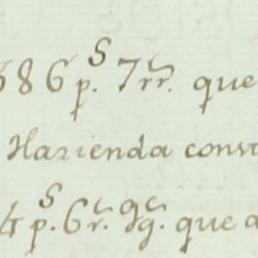 586 p.s 7 rr.s que
Hazienda const
4 p.s 6 r.s que a